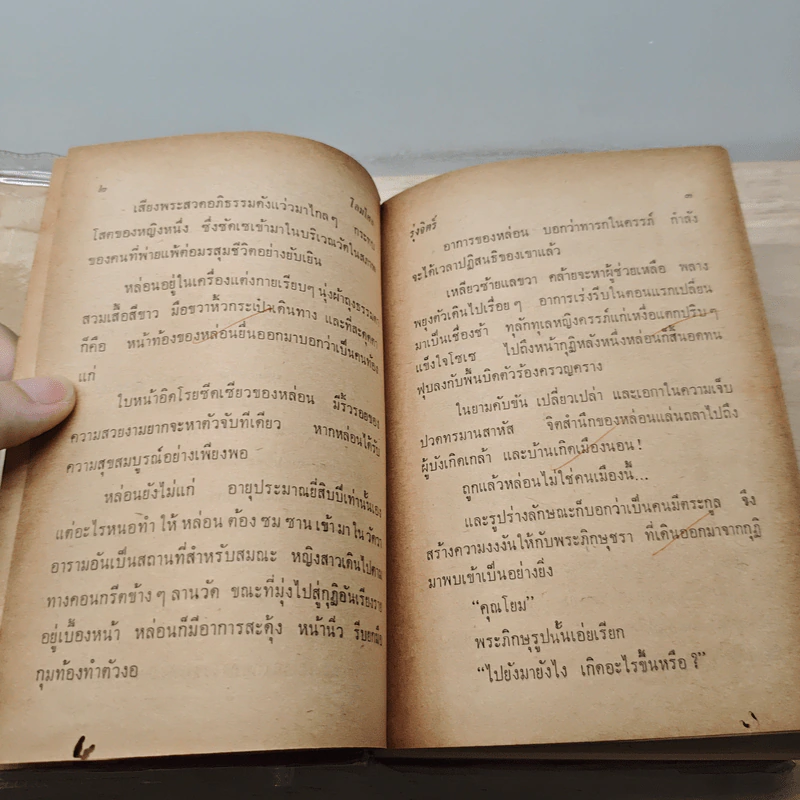 ๒
โลมโคน
เสียงพระสวดอภิธรรมดังแว่วมาไกลๆ กระทบ
โสตของหญิงหนึ่ง ซึ่งซัดเซเข้ามาในบริเวณวัดในสภาพ
ของคนที่พ่ายแพ้ต่อมรสุมชีวิตอย่างยับเยิน
หล่อนอยู่ในเครื่องแต่งกายเรียบๆ นุ่งผ้าถุงธรรมดา
สวมเสื้อสีขาว มือขวาหิ้วกระเป๋าเดินทาง และที่สะดุดตา
ก็คือ หน้าท้องของหล่อนยื่นออกมาบอกว่าเป็นคนท้อง
แก่
ใบหน้าอิดโรยซีดเซียวของหล่อน มีริ้วรอยของ
ความสวยงามยากจะหาตัวจับทีเดียว หากหล่อนได้รับ
ความสุขสมบูรณ์อย่างเพียงพอ
หล่อนยังไม่แก่ อายุประมาณยี่สิบปีเท่านั้นเอง
แต่อะไรหนอทำให้หล่อนต้องซมซานเข้ามาในวัดวา
อารามอันเป็นสถานที่สำหรับสมณะ หญิงสาวเดินไปตาม
ทางคอนกรีตข้างๆ ลานวัด ขณะที่มุ่งไปสู่กุฏิอันเรียงราย
อยู่เบื้องหน้า หล่อนก็มีอาการสะดุ้ง หน้านิ่ว รีบยกมือ
กุมท้องทำตัวงอ
รุ่งจิตร์
๓
อาการของหล่อน บอกว่าทารกในครรภ์ กำลัง
จะได้เวลาปฏิสนธิของเขาแล้ว
เหลียวซ้ายแลขวา คล้ายจะหาผู้ช่วยเหลือ พลาง
พยุงตัวเดินไปเรื่อยๆ อาการเร่งรีบในตอนแรกเปลี่ยน
มาเป็นเชื่องช้า ทุลักทุเลหญิงครรภ์แก่เหงื่อแตกปริบๆ
แข็งใจโซเซ ไปถึงหน้ากุฏิหลังหนึ่งหล่อนก็สิ้นอดทน
ฟุบลงกับพื้นบิดตัวร้องครวญคราง
ในยามคับขัน เปลี่ยวเปล่า และเอกาในความเจ็บ
ปวดทรมานสาหัส จิตสำนึกของหล่อนแล่นถลาไปถึง
ผู้บังเกิดเกล้า และบ้านเกิดเมืองนอน!
ถูกแล้วหล่อนไม่ใช่คนเมืองนี้...
และรูปร่างลักษณะก็บอกว่าเป็นคนมีตระกูล จึง
สร้างความงงงันให้กับพระภิกษุชรา ที่เดินออกมาจากกุฏิ
มาพบเข้าเป็นอย่างยิ่ง
“คุณโยม”
พระภิกษุรูปนั้นเอ่ยเรียก
“ไปยังมายังไง เกิดอะไรขึ้นหรือ ?”